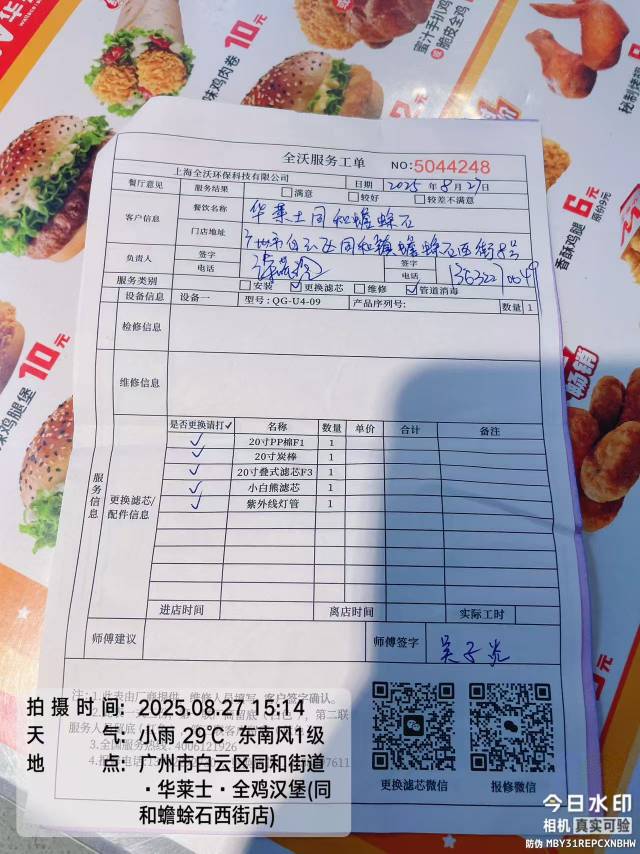 华
味鸡肉卷 10元
蜜汁手扒鸡
脆皮全鸡
秘制烤
6元
香酥鸡腿 原价9元
畅销
辣鸡腿堡 10元
全沃服务工单 NO:5044248
上海全沃环保科技有限公司 日期 2025 年 8 月 27 日
餐厅意见 服务结果 满意 较好 较差不满意
客户信息 餐饮名称 华莱士同和蟾蜍石
门店地址 广州市白云区同和蟾蜍石西街8号
负责人 签字 签字
电话 电话
服务类别 安装 ✓更换滤芯 维修 ✓管道消毒
设备信息 设备一 型号: QG-U4-09 产品序列号: 数量 1
检修信息
维修信息
服务信息
更换滤芯/配件信息
是否更换请打✓ 名称 数量 单价 合计 备注
✓ 20寸PP棉F1 1
✓ 20寸炭棒 1
✓ 20寸叠式滤芯F3 1
✓ 小白熊滤芯 1
✓ 紫外线灯管 1
进店时间 离店时间 实际工时
师傅建议 师傅签字
注: 1.此表由厂商提供，维修人员填写，客户签字确认。
第二联
服务人员
3.全国服务热线: 4006121926
更换滤芯微信 报修微信
拍摄时间: 2025.08.27 15:14
天气: 小雨 29℃ 东南风1级
地点: 广州市白云区同和街道
·华莱士·全鸡汉堡(同
和蟾蜍石西街店)
今日水印
相机 真实可验
防伪 MBY31REPCXNBHW